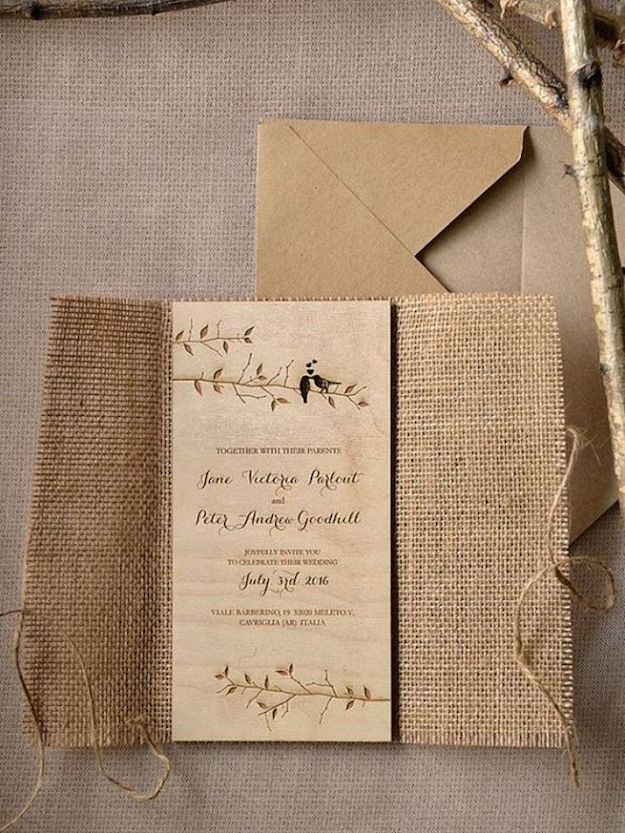 TOGETHER WITH THEIR PARENTS
Jane Victoria Parlout
and
Peter Andrew Goodhill
JOYFULLY INVITE YOU
TO CELEBRATE THEIR WEDDING
July 3rd 2016
VIALE BARBERINO, 19 52020 MELETO V.
CAVRIGLIA (AR) ITALIA